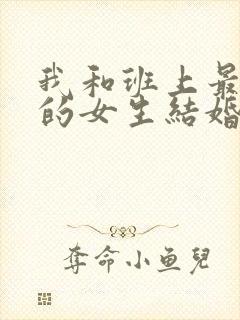 我和班上最
的女生結婚
奪命小鱼兒